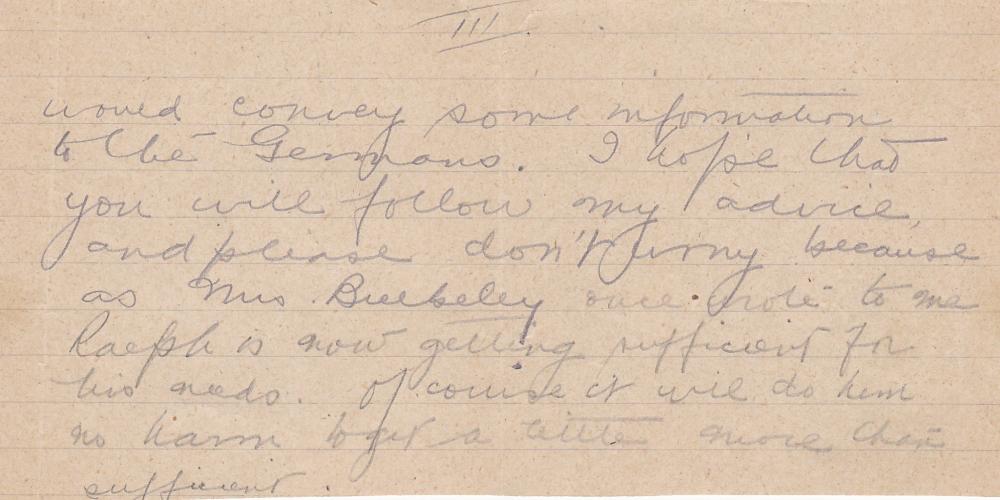 III.
would convey some information
to the Germans. I hope that
you will follow my advice,
and please don't worry because
as Mrs Bulkeley once wrote to me
Ralph is now getting sufficient for
his needs. Of course it will do him
no harm to get a little more than
sufficient.